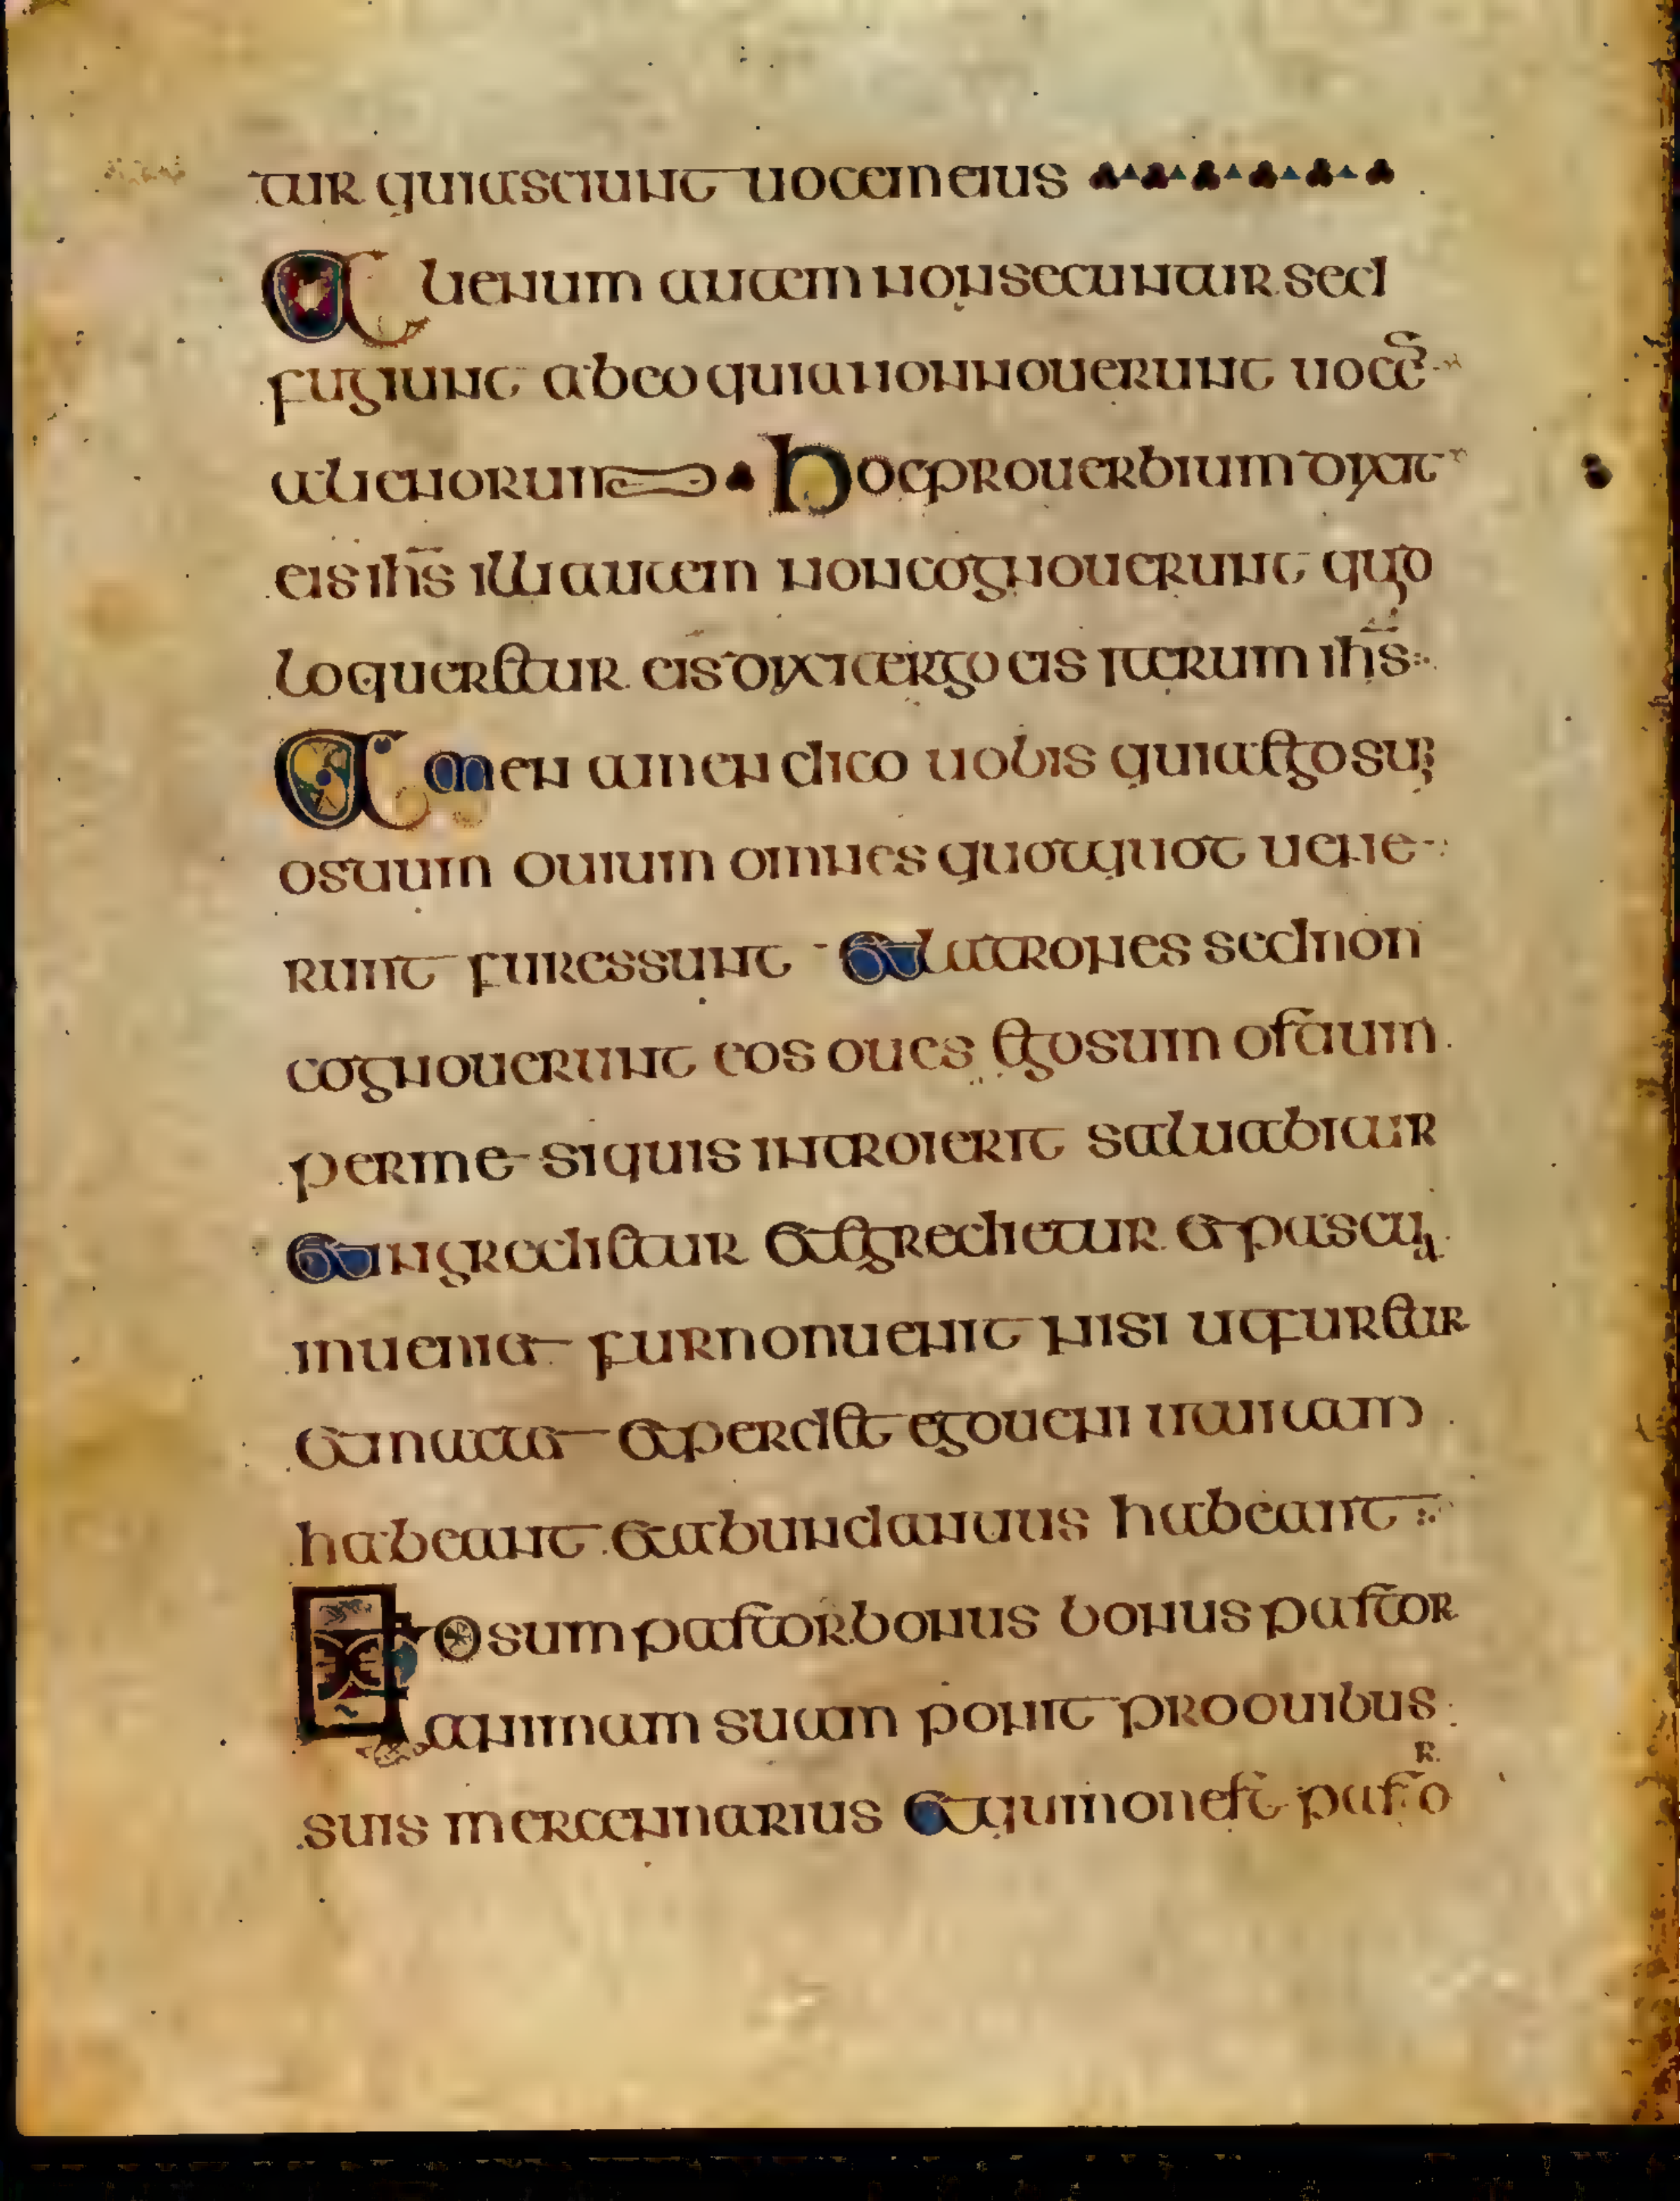 tur quia sciunt uocem eius
Alienum autem non secuntur sed
fugiunt ab eo quia non nouerunt uocē
alienorum Hoc prouerbium dixit
eis ihs̄ illi autem non cognouerunt quid
loqueretur eis dixit ergo eis iterum ihs̄
Amen amen dico uobis quia ego sum
osuum ouium omnes quotquot uene
runt fures sunt et latrones sed non
cognouerunt eos oues ego sum osteum
per me si quis introierit saluabitur
et ingredietur et egredietur et pascua
inueniet fur non uenit nisi ut furetur
et mactet et perdet ego ueni ut uitam
habeant et abundantius habeant
Ego sum pastor bonus bonus pastor
animam suam ponit pro ouibus
suis mercennarius et qui non est pastor